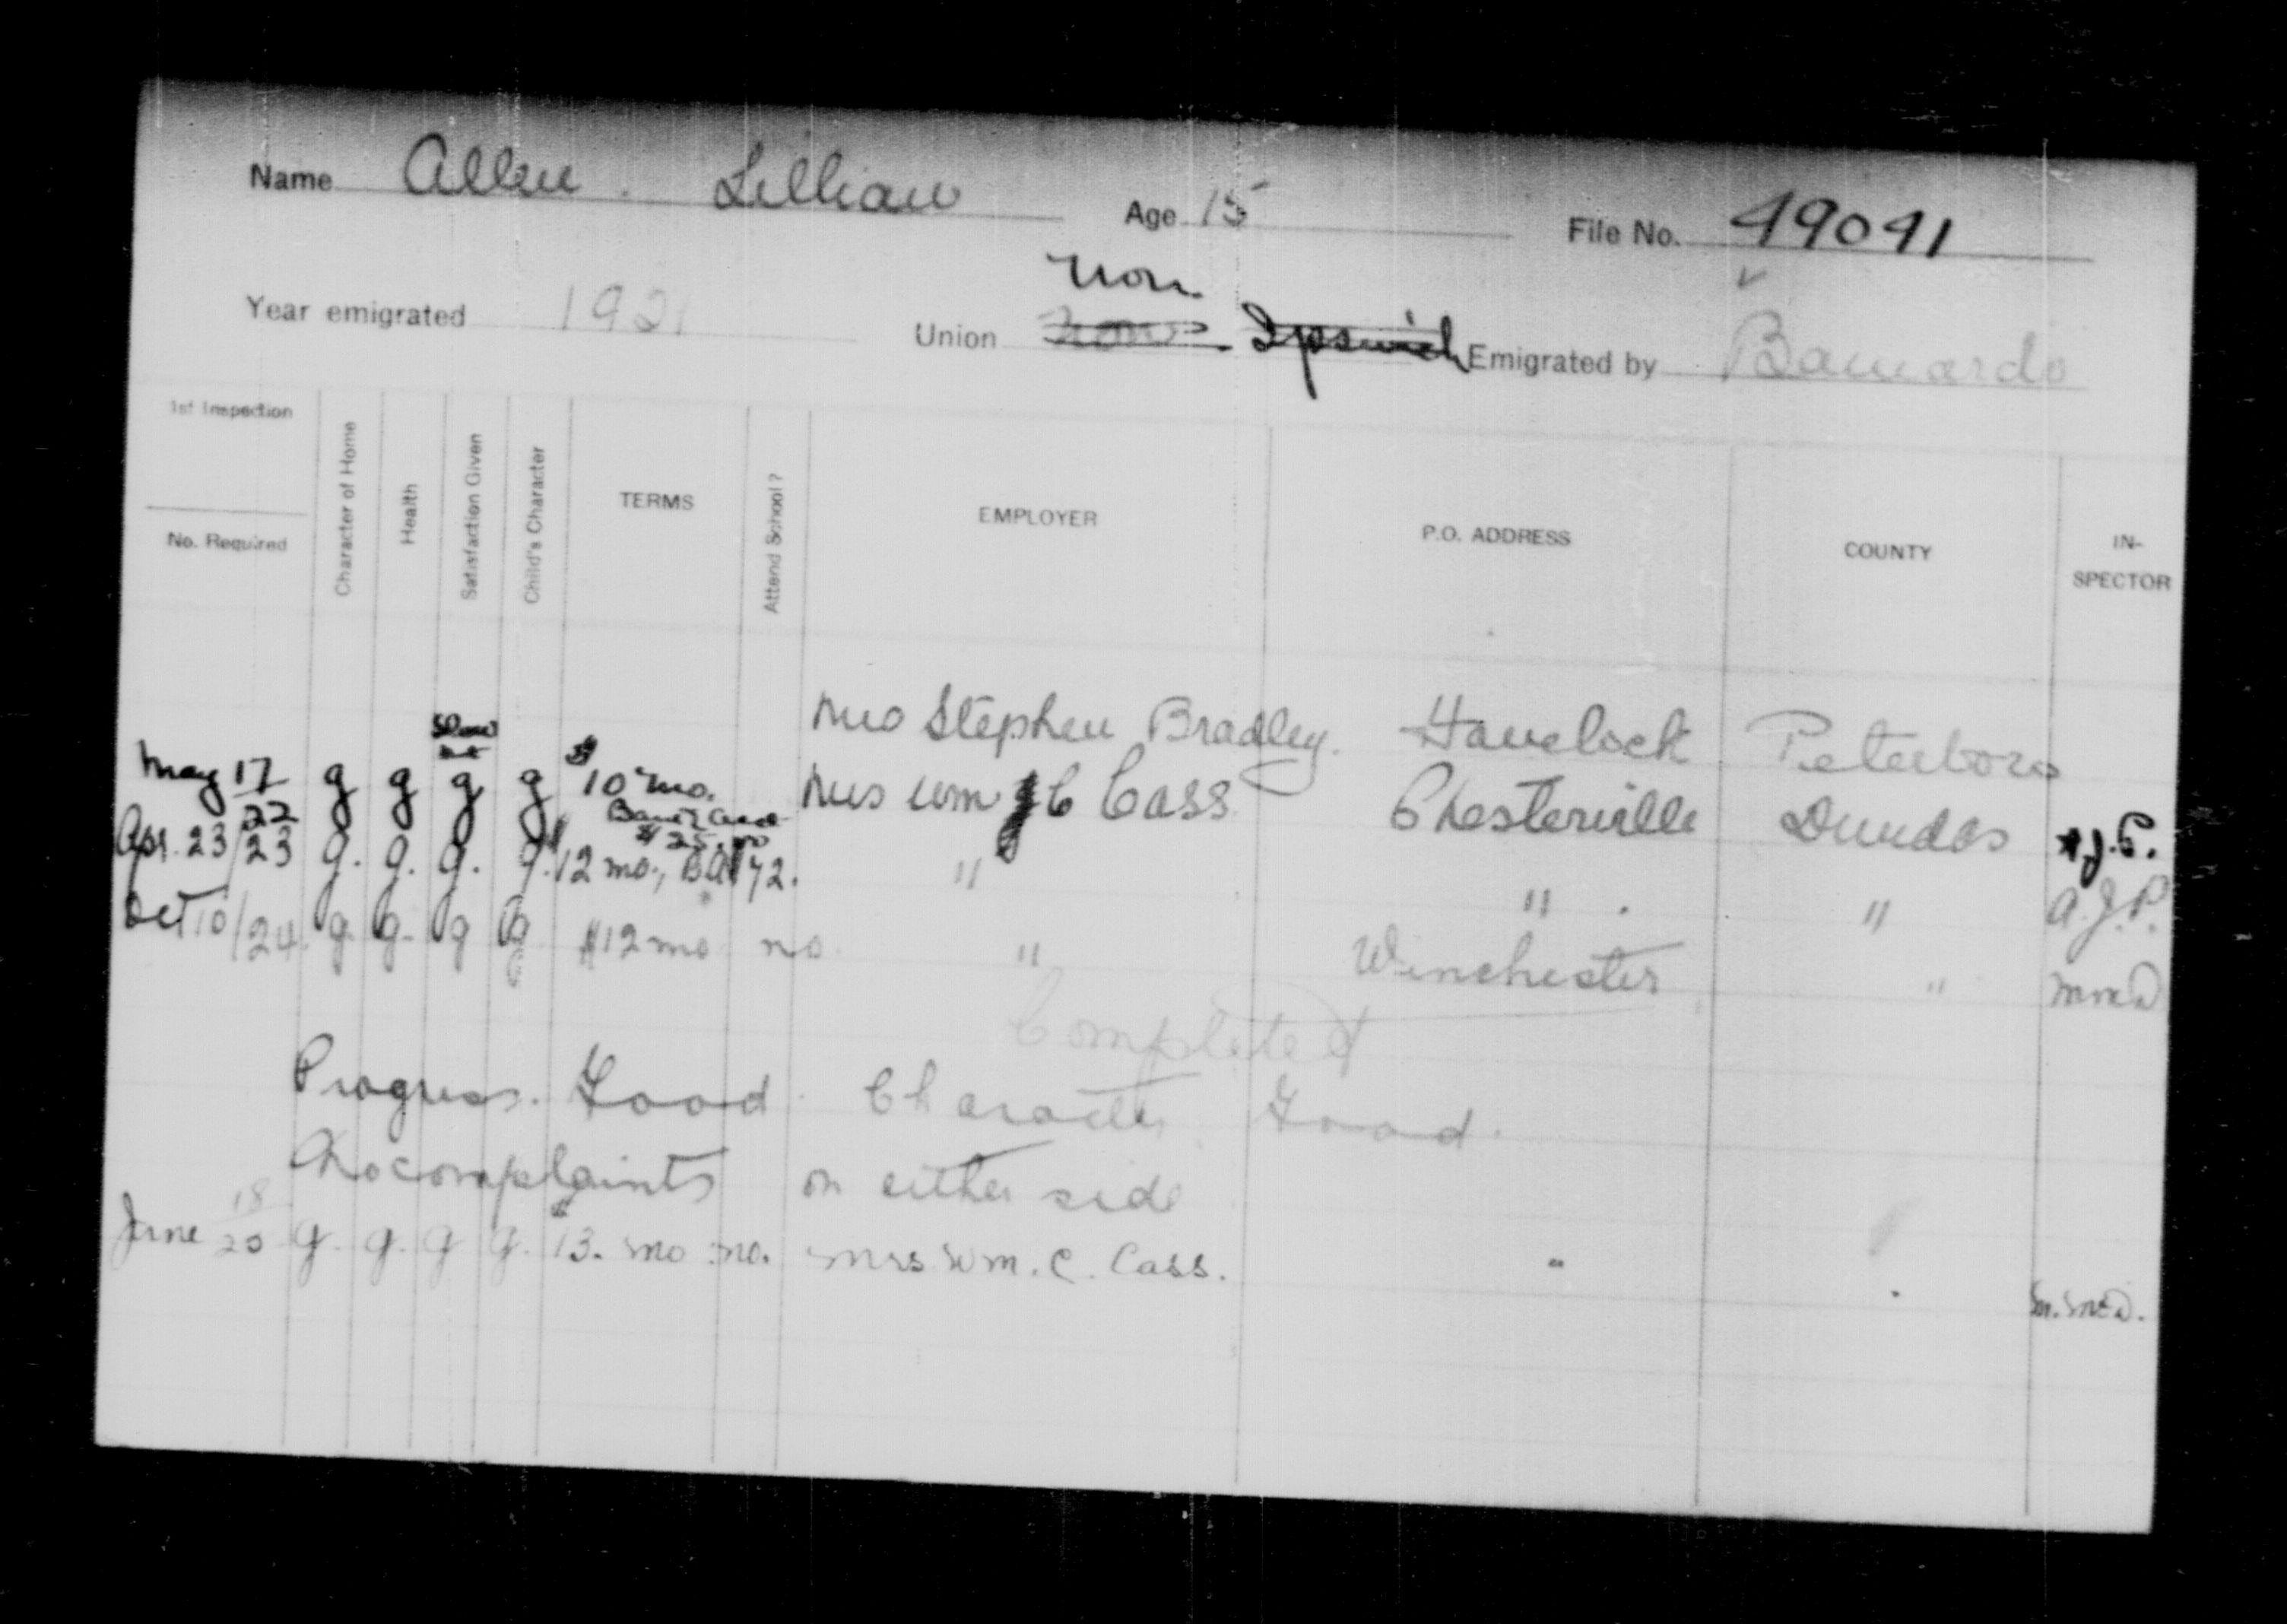 Name Allen . Lillian Age 15 File No. 49041
Non
Year emigrated 1921 Union Non. Ipswich Emigrated by Barnardo
1st Inspection
No. Required
Character of Home
Health
Satisfaction Given
Child's Character
TERMS
Attend School?
EMPLOYER
P.O. ADDRESS
COUNTY
IN-
SPECTOR
Mrs Stephen Bradley. Havelock Peterboro
Slow
May 17/22 g g g g $10 mo. Mrs Wm C Cass Chesterville Dundas A.J.P.
Bank acct
$25.00
Apr. 23/23 g. g. g. g. $12 mo., BA $72. " " . " A.J.P.
Oct 10/24. g. g. g g $12 mo no. " Winchester " MMED
Completed
Progress. Good. Character. Good.
No complaints on either side
June 18/25 g. g. g g. $13. mo no. Mrs Wm. C. Cass. " . M.MED.